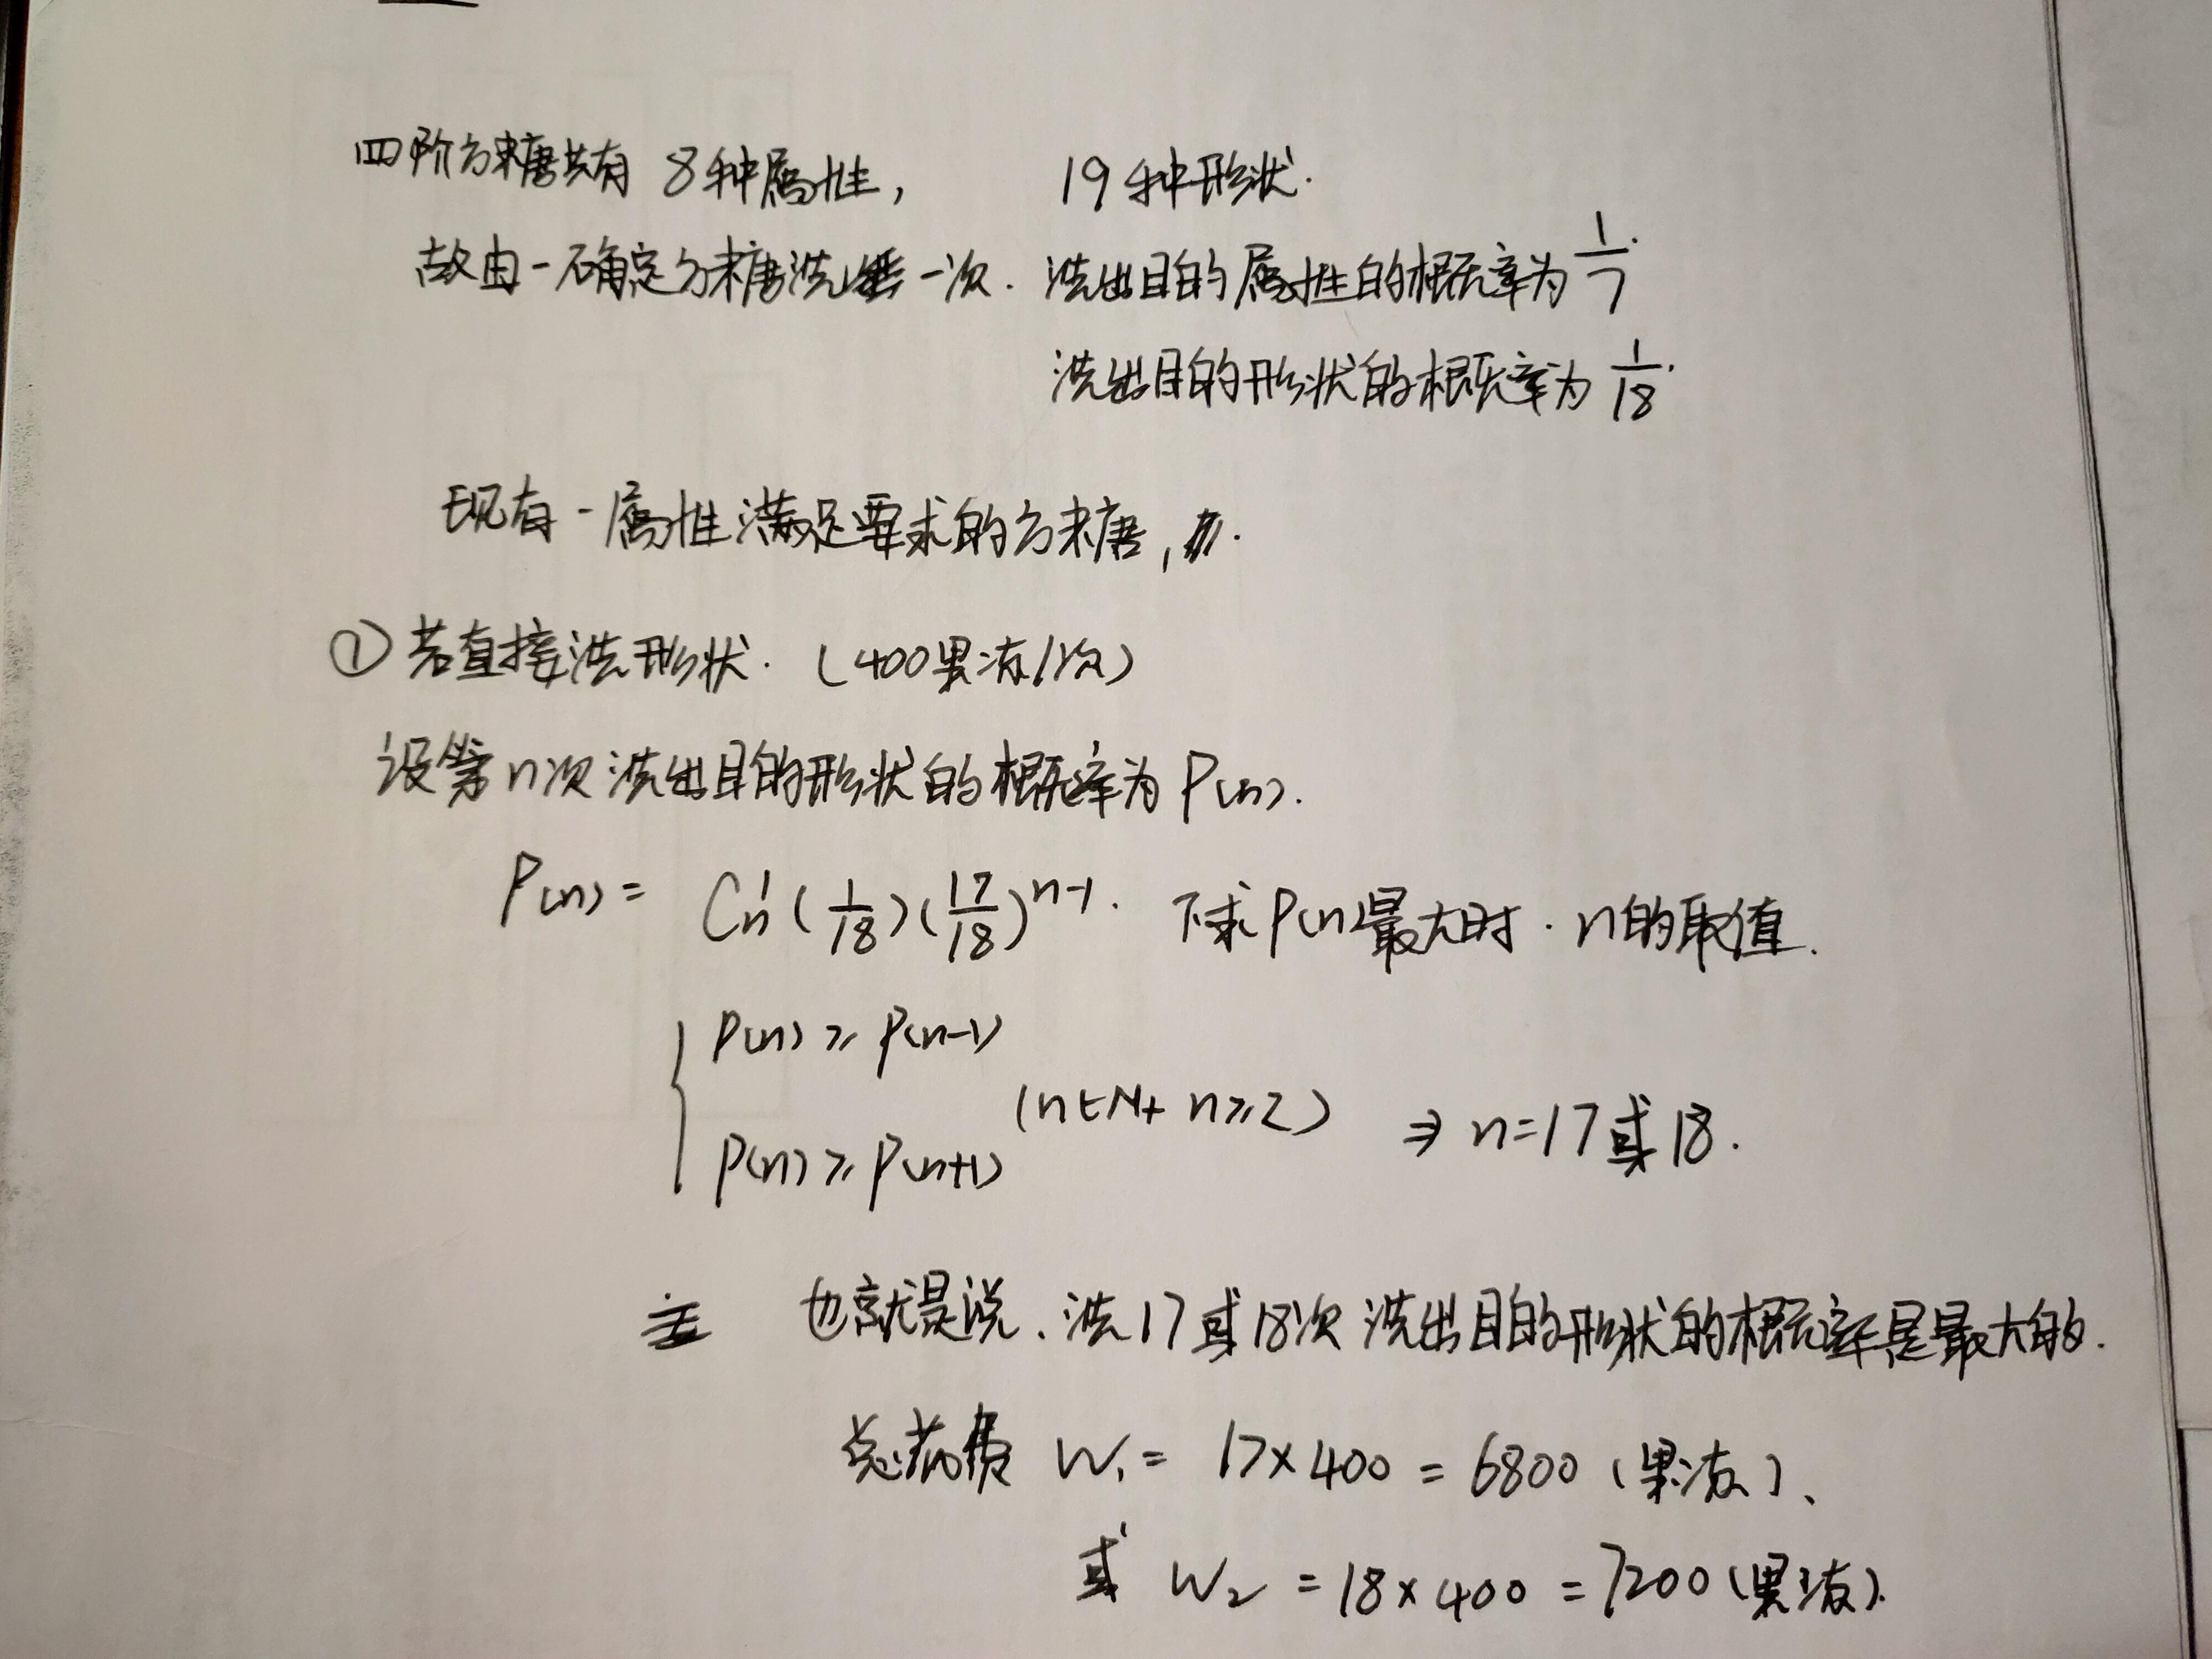 四阶方糖共有 8种属性, 19种形状.
故由一确定方糖洗一次. 洗出目的属性的概率为 1/7.
洗出目的形状的概率为 1/18.
现有一属性满足要求的方糖,
① 若直接洗形状. (400果冻/次)
设第n次洗出目的形状的概率为P(n).
P(n) = C_n^1 (1/18)(17/18)^{n-1}. 下求P(n)最大时. n的取值.
P(n) ≥ P(n-1)
(n∈N+ n≥2) ⇒ n=17或18.
P(n) ≥ P(n+1)
也就是说. 洗17或18次 洗出目的形状的概率是最大的.
总花费 W₁ = 17×400 = 6800 (果冻)、
或 W₂ = 18×400 = 7200 (果冻).